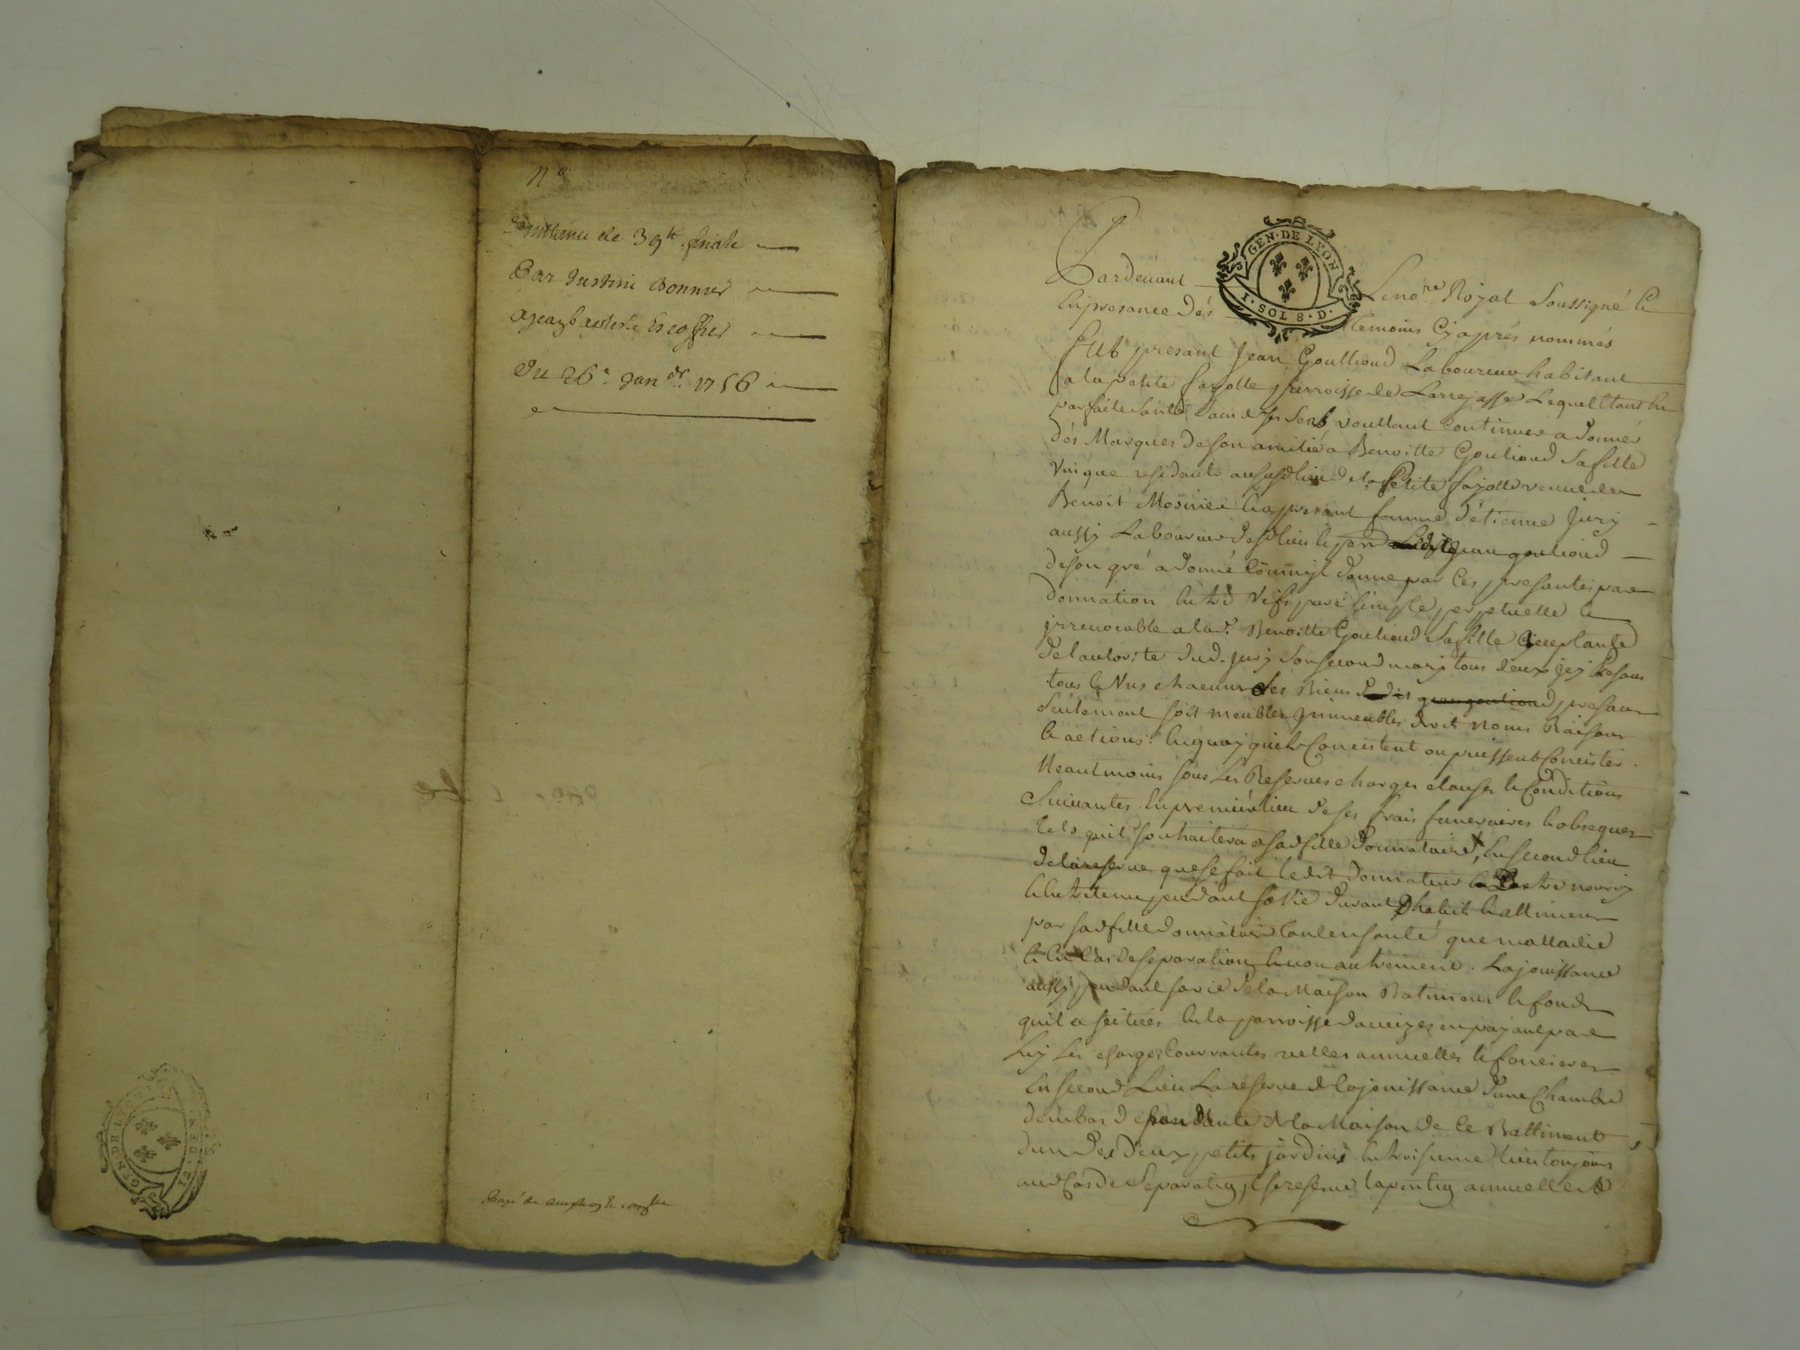 N°
de 39tt
Par Justine Bonnier
a Jean baptiste Escoffier
Du 26e Janvr 1756
GEN·DE LYON
1·SOL 8·D·
Pardevant Le nore Royal Soussigné Et
En presance Dés témoins Cy aprés nommés
fut presant Jean Goultioud Laboureur habitant
a la petite fayolle parroisse de Larrajasse Lequel Etant En
parfaite Santé Sain de ses Sens voullant Continuer a Donner
dés Marques de son amitié a Benoitte Goutioud Sa fille
Unique residante au susd lieu de la petite fayolle veuve de
Benoit Mosnier Et a present femme d'étienne Jury
aussy Laboureur dud lieu Jean goutioud
de son gré a Donné Comme il Donne par Ces presantes par
Donnation Entre Vifs pure Simple perpetuelle Et
jrrevocable a lad. Benoitte Goutioud Sa fille acceptante
de l'autorité dud. Jury Son second mary tous deux jcy presans
tous Et Uns chacuns Ses Biens presans
Seulement soit meubles jmmeubles droit noms Raisons
Et actions En quoy qu'ils Consistent ou puissent Consister.
Neautmoins sous Les Reserves charges clauses Et Conditions
Suivantes En premier lieu de ses frais funeraires Et obseques
tels qu'il souhaitera a sad fille Donnataire, En second lieu
de la reserve que se fait ledit Donnateur d'estre nourry
Et Entretenu pendant sa vie durant d'habits Et allimens
par sad fille Donnataire tant en santé que malladie
Et En Cas de separation Et non autrement. La jouissance
aussy pendant sa vie de la Maison Batimens Et fonds
qu'il a scitués En la parroisse en payant par
Luy Les charges Courrantes annuelles Et foncieres
En second Lieu La reserve de la jouissance d'une Chambre
d'enbas dependante de la Maison Et Battiment
d'un des Deux petits jardins En troisieme lieu toujours
aud Cas de Separation, se reserve la pention annuelle de